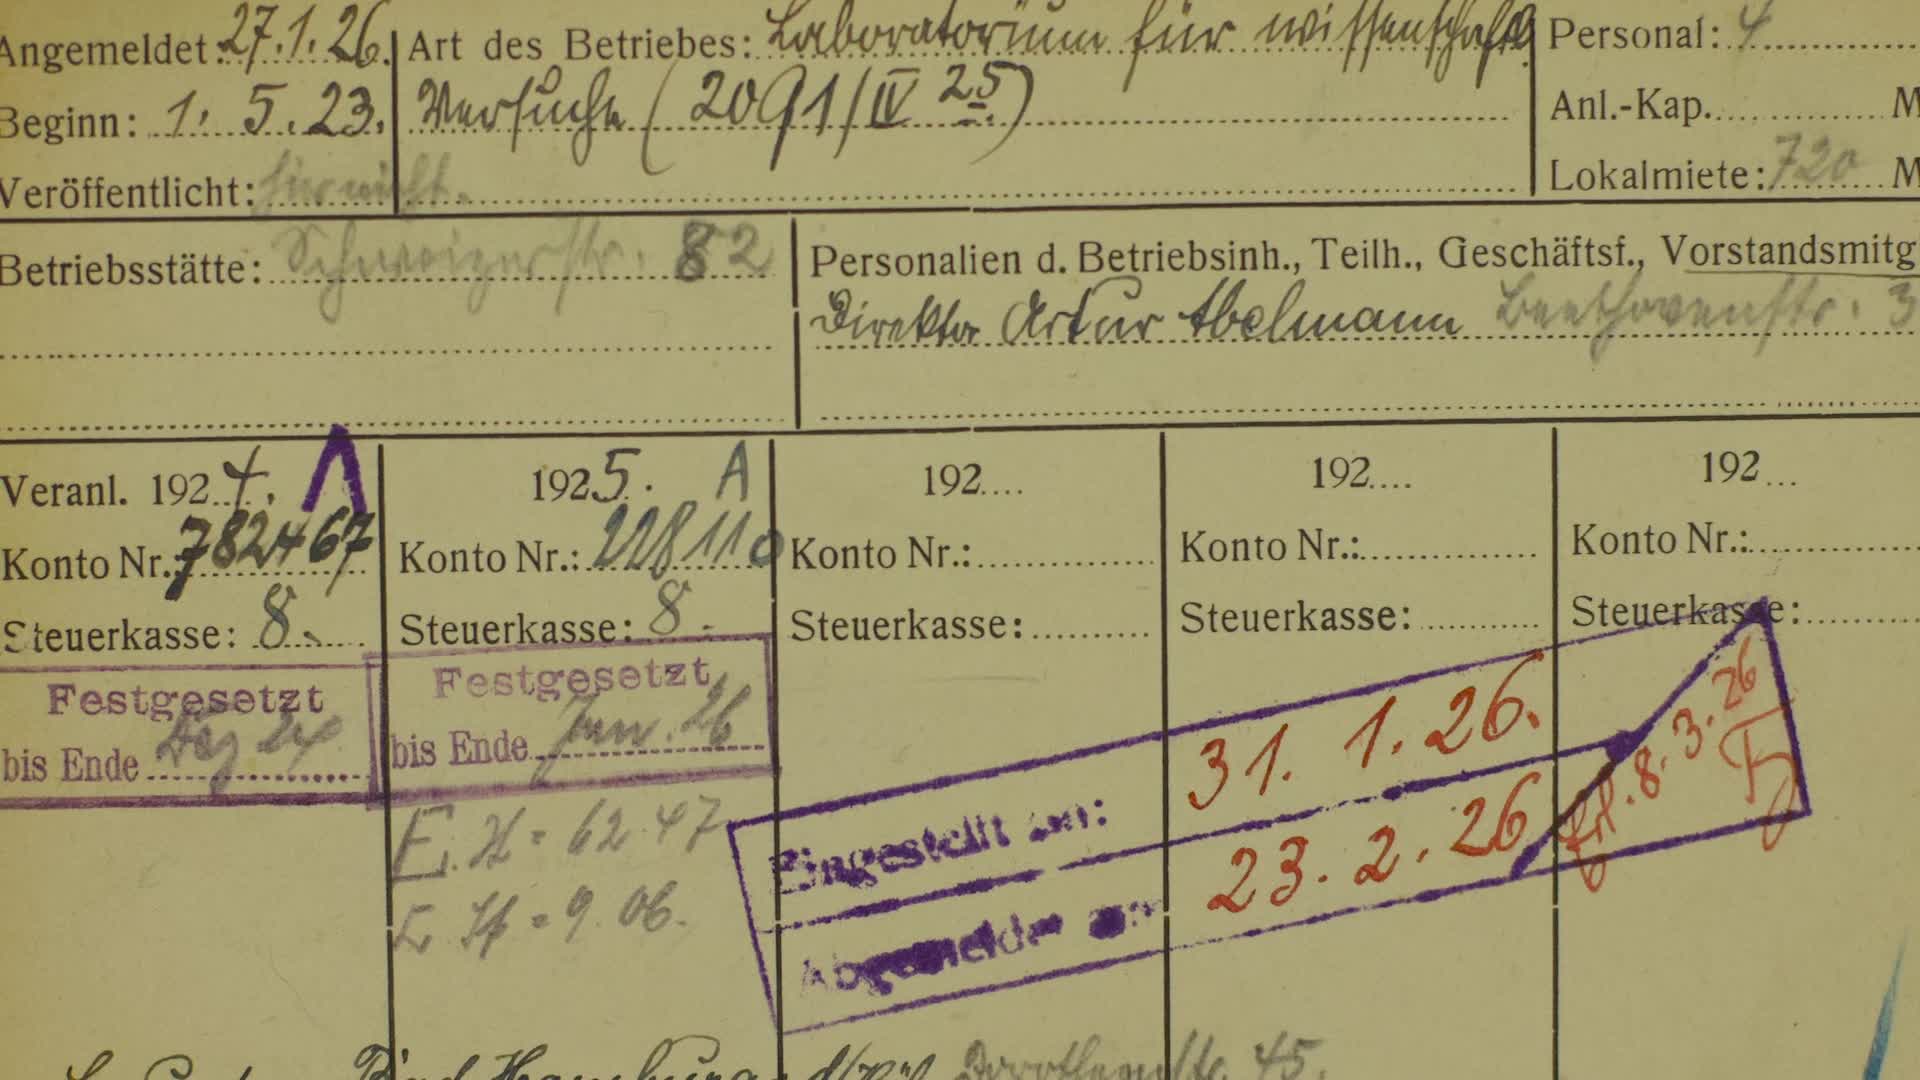 Angemeldet: 27.1.26. Art des Betriebes: Laboratorium für wissenschaftl. Personal: 4
Beginn: 1. 5. 23. Versuche (2091/IV 25.) Anl.-Kap. M
Veröffentlicht: Lokalmiete: 720 M
Betriebsstätte: Schweizerstr. 82 Personalien d. Betriebsinh., Teilh., Geschäftsf., Vorstandsmitg
Direktor Artur Abelmann Beethovenstr. 3
Veranl. 1924. A 1925. A 192.... 192.... 192...
Konto Nr.: 782467 Konto Nr.: 228110 Konto Nr.: Konto Nr.: Konto Nr.:
Steuerkasse: 8. Steuerkasse: 8. Steuerkasse: Steuerkasse: Steuerkasse:
Festgesetzt Festgesetzt
bis Ende Dez 24 bis Ende Jan. 26
Eingestellt am: 31. 1. 26.
Abgemeldet am: 23. 2. 26 erl. 8. 3. 26
= 62.47
= 9.06.
Bad Homburg Dorotheenstr. 45.